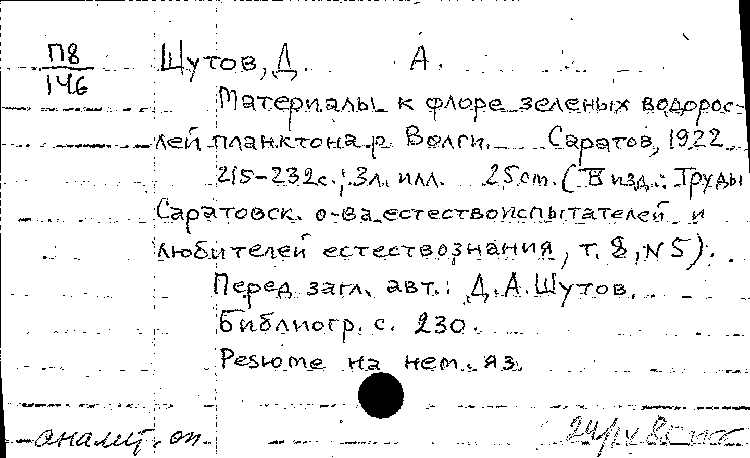 П8
146
Шутов, Д. А.
Материалы к флоре зеленых водорос-
лей планктона р. Волги. Саратов, 1922
215-232с.; 3л. илл. 25cm. (В изд.: Труды
Саратовск. о-ва естествоиспытателей и
любителей естествознания, т. 8, №5).
Перед загл. авт.: Д. А. Шутов.
Библиогр. с. 230.
Резюме на нем. яз.
аналит. оп.